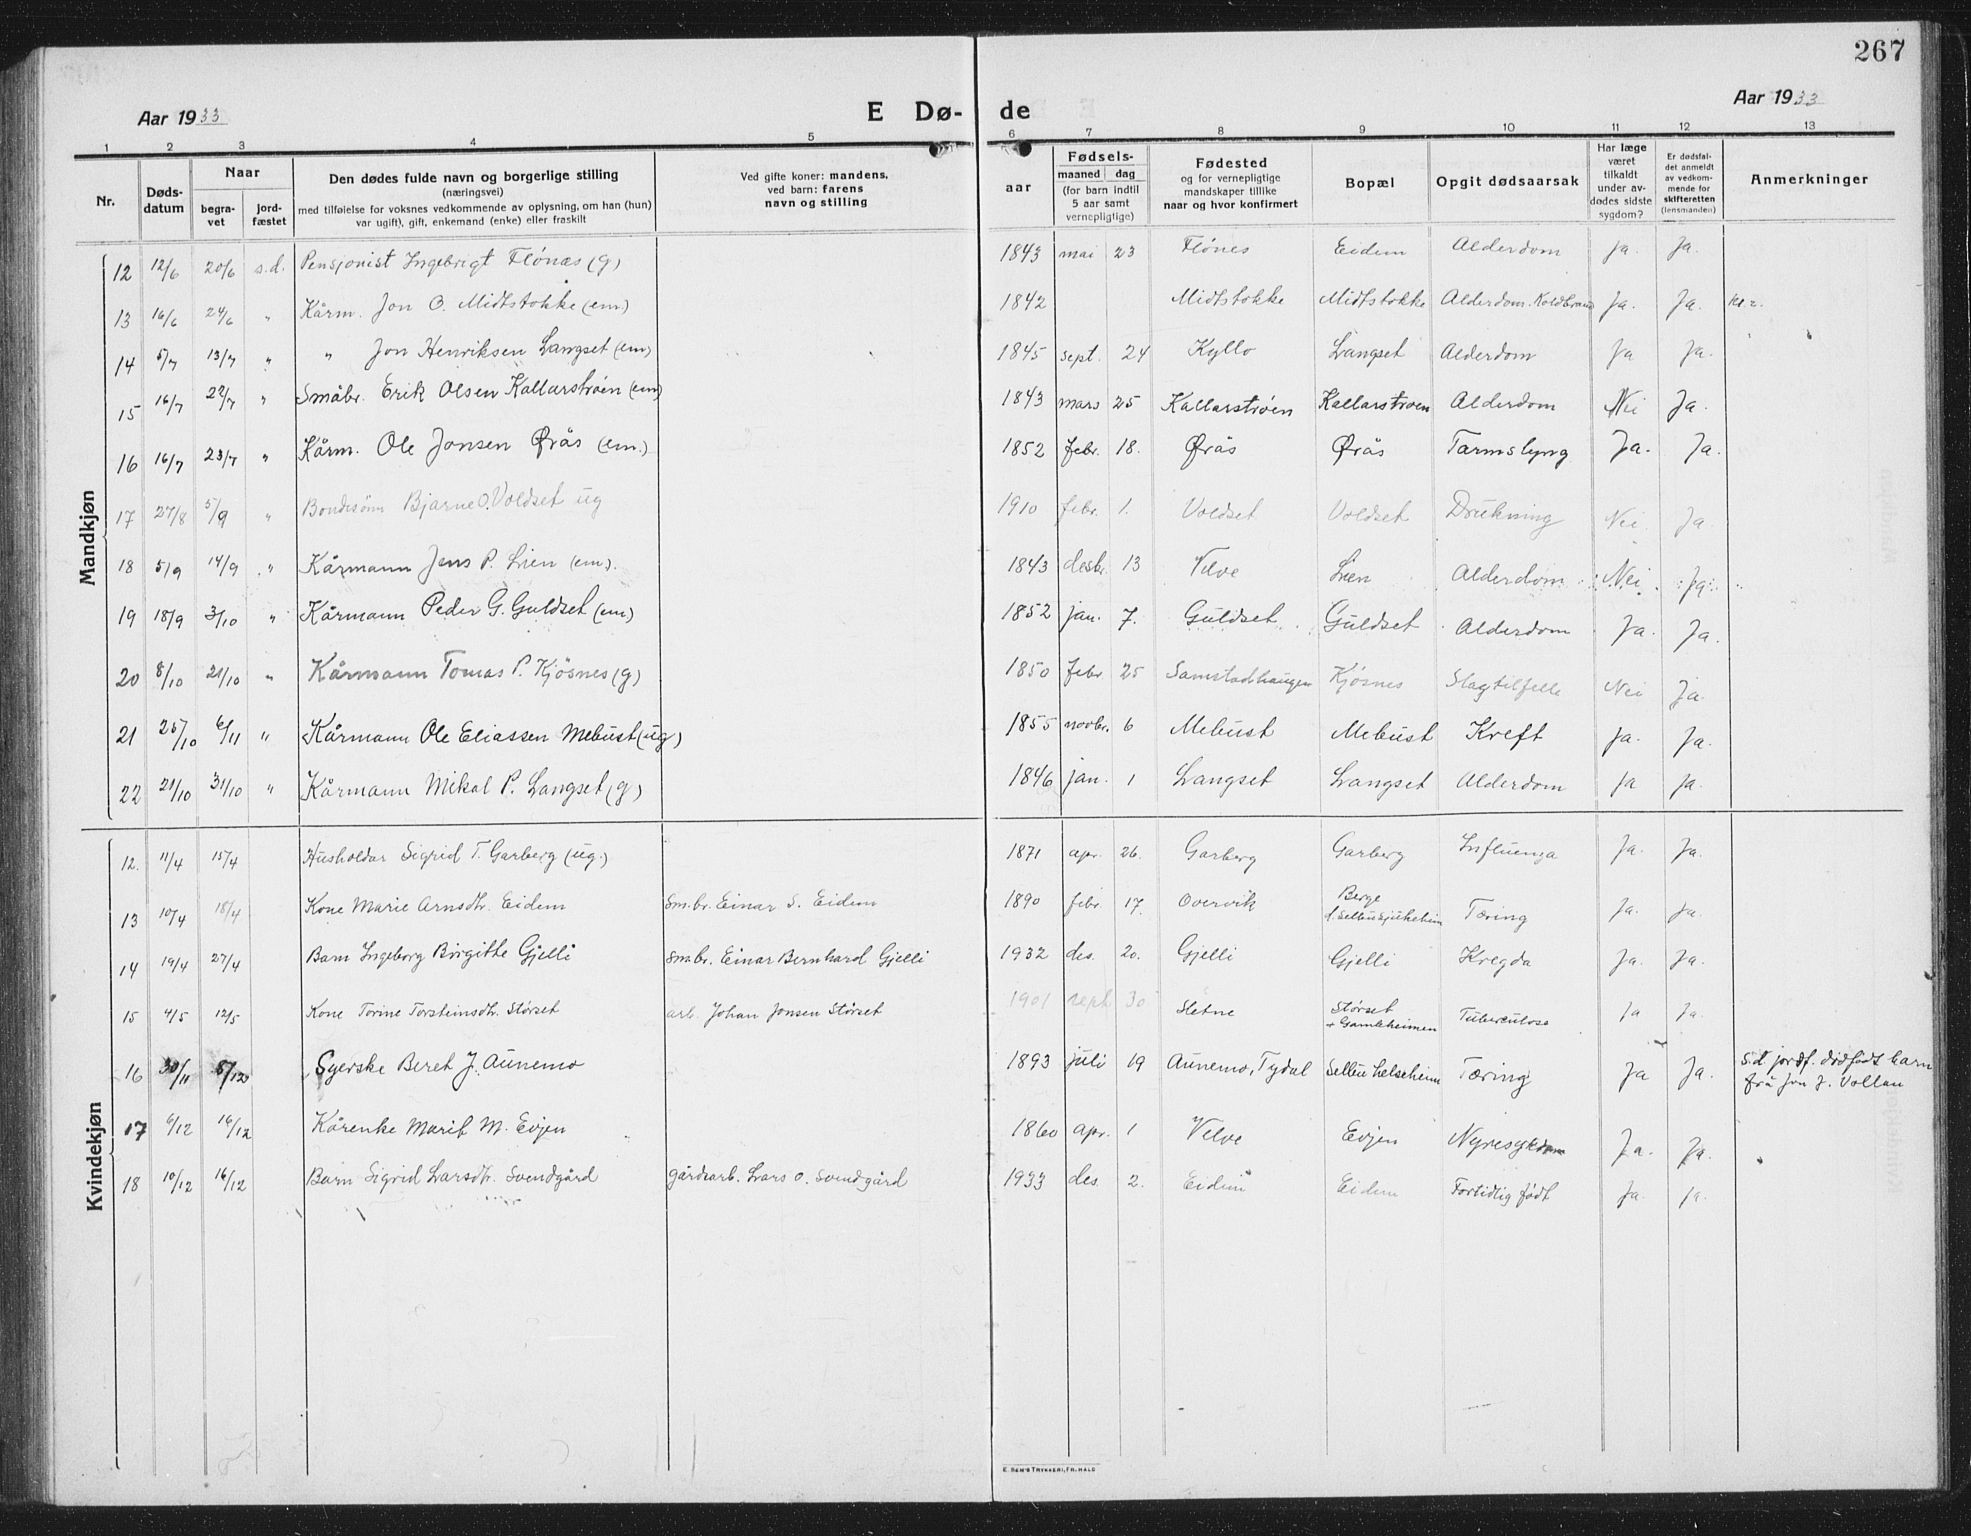 267
Aar 1933
E Dø- de
Aar 1933
1 2 3 4 5 6 7 8 9 10 11 12 13
Nr.
Døds-
datum
Naar
begra-
vet
jord-
fæstet
Den dødes fulde navn og borgerlige stilling
(næringsvei)
med tilføielse for voksnes vedkommende av oplysning, om han (hun)
var ugift), gift, enkemand (enke) eller fraskilt
Ved gifte koner: mandens,
ved barn: farens
navn og stilling
aar
Fødsels-
maaned dag
(for barn indtil
5 aar samt
vernepligtige)
Fødested
og for vernepligtige
mandskaper tillike
naar og hvor konfirmert
Bopæl
Opgit dødsaarsak
Har læge
været
tilkaldt
under av-
dødes sidste
sygdom?
Er dødsfal-
det anmeldt
av vedkom-
mende for
skifteretten
(lensmanden)
Anmerkninger
Mandkjøn
12 12/6 20/6 s.d. Pensjonist Ingebrigt Flønæs (g) 1843 mai 23 Flönes Eidem Alderdom Ja. Ja.
13 16/6 24/6 " Kårm. Jon O. Midtstokke (em) 1842 Midtstokke Midtstokke Alderdom. Koldbrand Ja. Ja. kl. 2.
14 5/7 13/7 " " Jon Henriksen Langset (em) 1845 sept. 24 Kyllo Langset Alderdom Ja Ja.
15 16/7 22/7 " Småbr. Erik Olsen Kallarstrøen (em) 1843 mars 25 Kallarströen Kallarstrøen Alderdom Nei Ja.
16 16/7 23/7 " Kårm. Ole Jonsen Øråş (em.) 1852 febr. 18. Øråş Øråş Tarmslyng Ja. Ja.
17 27/8 5/9 " Bondesønn Bjarne O. Voldset ug 1910 febr. 1. Voldset Voldset Drukning Nei Ja
18 5/9 14/9 " Kårmann Jens P. Lien (em). 1843 desbr. 13 Velve Lien Alderdom Nei Ja
19 18/9 3/10 " Kårmann Peder G. Guldset (em) 1852 jan. 7. Guldset Guldset Alderdom Ja. Ja.
20 8/10 21/10 " Kårmann Tomas P. Kjösnes (g) 1850 febr 25 Samstadhaugen Kjösnes Slagtilfelle Nei Ja.
21 25/10 6/11 " Kårmann Ole Eliassen Mebust (ug) 1855 novbr. 6 Mebust Mebust Kreft Ja. Ja.
22 21/10 31/10 " Kårmann Mikal P. Langset (g) 1846 jan. 1 Langset Langset Alderdom Ja Ja.
Kvindekjøn
12. 11/4 15/4 Husholdar Sigrid T. Garberg (ug.) 1871 apr. 26. Garberg Garberg Influenza Ja. Ja.
13 10/4 18/4 Kone Marie Arnsdtr. Eidem Sm.br. Einar S. Eidem 1890 febr. 17. Overvik Berge
d. Selbu sjukeheim Tæring Ja. Ja.
14 19/4 27/4 Barn Ingeborg Birgitte Gjelli Sm.br. Einar Bernhard Gjelli 1932 des. 20. Gjelli Gjelli Kregda Ja. Ja.
15 4/5 12/5 Kone Torine Torsteinsdtr. Størset arb. Johan Jonsen Størset 1901 sept 30 Sletne Størset
Gamleheimen Tuberculose Ja Ja.
16 30/11 5/12 Syerske Beret J. Aunemo 1893 juli 19 Aunemo, Tydal Selbu helseheim Tæring Ja Ja. s.d. jordf. dødfødt barn
frå Jon J. Vollan
17 6/12 16/12 Kårenke Marit M. Evjen 1860 apr. 1 Velve Evjen Nyresykdom Ja. Ja.
18 10/12 16/12 Barn Sigrid Larsdtr. Svendgård gårdsarb. Lars O. Svendgård 1933 des. 2. Eidem Eidem Fortidlig født Ja. Ja.
E. SEM'S TRYKKERI, FR.HALD